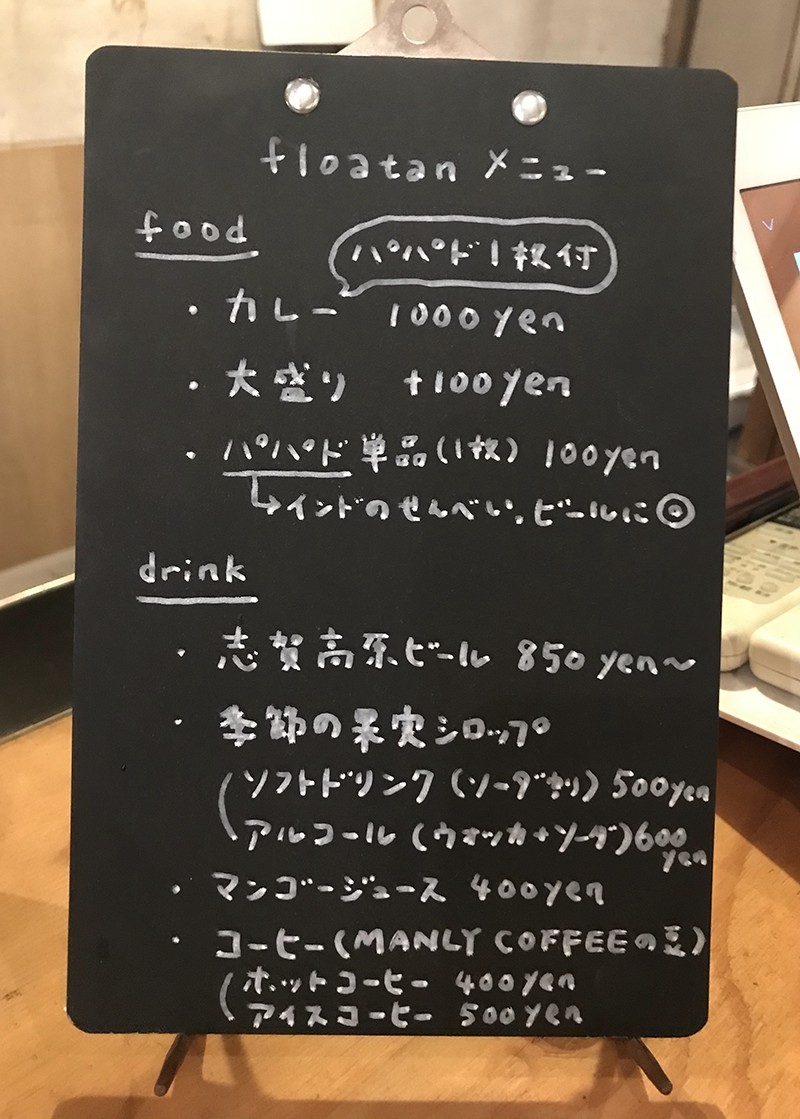 floatan メニュー
food
パパド1枚付
・カレー 1000yen
・大盛り +100yen
・パパド単品(1枚) 100yen
↳インドのせんべい。ビールに◎
drink
・志賀高原ビール 850yen〜
・季節の果実シロップ
ソフトドリンク(ソーダ割り) 500yen
アルコール(ウォッカ+ソーダ)600yen
・マンゴージュース 400yen
・コーヒー(MANLY COFFEEの豆)
ホットコーヒー 400yen
アイスコーヒー 500yen